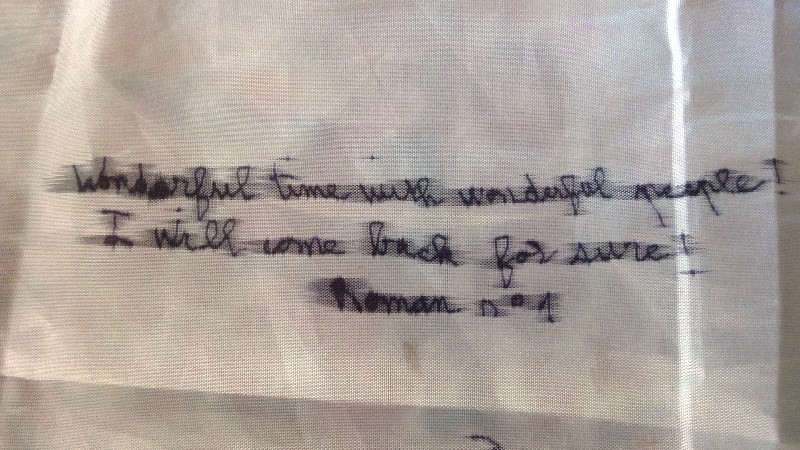 Wonderful time with wonderful people!
I will come back for sure!
Roman n°1